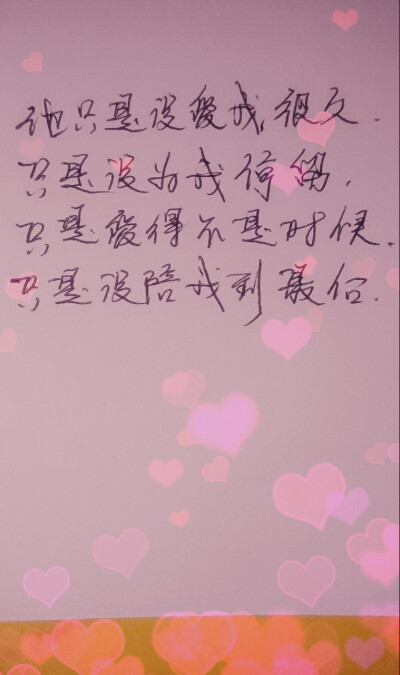 他只是没爱我很久.
只是没为我停留.
只是爱得不是时候.
只是没陪我到最后.